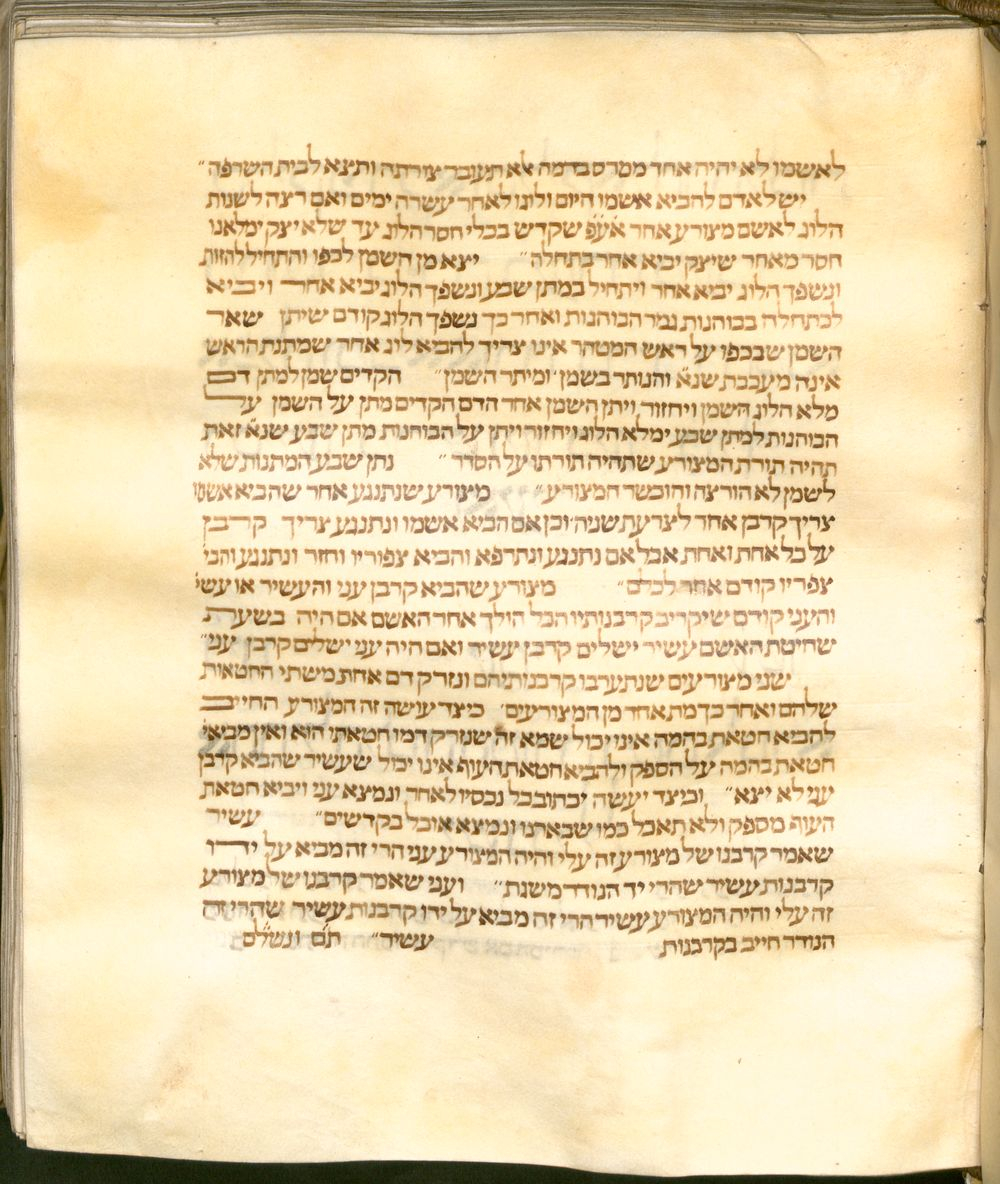 לאשמו לא יהיה אחד מטרס בדמה אלא תעובר צורתה ותצא לבית השרפה״
יש לאדם להביא אשמו היום ולוגו לאחר עשרה ימים ואם רצה לשנות
הלוג לאשם מצורע אחר אע̇פ̇ שקדש בכלי חסר הלוג עד שלא יצק ימלאנו
חסר מאחר שיצק יביא אחר בתחלה״ יצא מן השמן לכפו והתחיל להזות
ונשפך הלוג יביא אחר ויתחיל במתן שבע ונשפך הלוג יביא אחר ויביא
לכתחלה בבוהנות גמר הבוהנות ואחר כך נשפך הלוג קודם שיתן שאר
השמן שבכפו על ראש המטהר אינו צריך להביא לוג אחר שמתנת הראש
אינה מעכבת שנ̇א̇ והנותר בשמן ומיתר השמן״ הקדים שמן למתן דם
מלא הלוג השמן ויחזור ויתן השמן אחר הדם הקדים מתן על השמן על
הבוהנות למתן שבע ימלא הלוג ויחזור ויתן על הבוהנות מתן שבע שנ̇א̇ זאת
תהיה תורת המצורע שתהיה תורתו על הסדר״ נתן שבע המתנות שלא
לשמן לא הורצה והוכשר המצורע״ מצורע שנתנגע אחר שהביא אשמו
צריך קרבן אחר לצרעת שניה וכן אם הביא אשמו ונתנגע צריך קרבן
על כל אחת ואחת אבל אם נתנגע ונתרפא והביא צפוריו וחזר ונתנגע והבי׳
צפריו קודם אחר לכלם״ מצורע שהביא קרבן עני והעשיר או עשי׳
והעני קודם שיקריב קרבנותיו הכל הולך אחר האשם אם היה בשעת
שחיטת האשם עשיר ישלים קרבן עשיר ואם היה עני ישלים קרבן עני״
שני מצורעים שנתערבו קרבנותיהם ונזרק דם אחת משתי החטאות
שלהם ואחר כך מת אחד מן המצורעים׳ כיצד עושה זה המצורע החי
להביא חטאת בהמה אינו יכול שמא זה שנזרק דמו חטאתו הוא ואין מביאי׳
חטאת בהמה על הספק ולהביא חטאת העוף אינו יכול שעשיר שהביא קרבן
עני לא יצא״ וכיצד יעשה יכתוב כל נכסיו לאחר ונמצא עני ויביא חטאת
העוף מספק ולא תאכל כמו שבארנו ונמצא אוכל בקדשים״ עשיר
שאמר קרבנו של מצורע זה עלי והיה המצורע עני הרי זה מביא על ידו
קרבנות עשיר שהרי יד הנודר משגת״ ועני שאמר קרבנו של מצורע
זה עלי והיה המצורע עשיר הרי זה מביא על ידו קרבנות עשיר שהרי זה
הנודר חייב בקרבנות עשיר״ ת̇ם̇ ונש̇ל̇ם